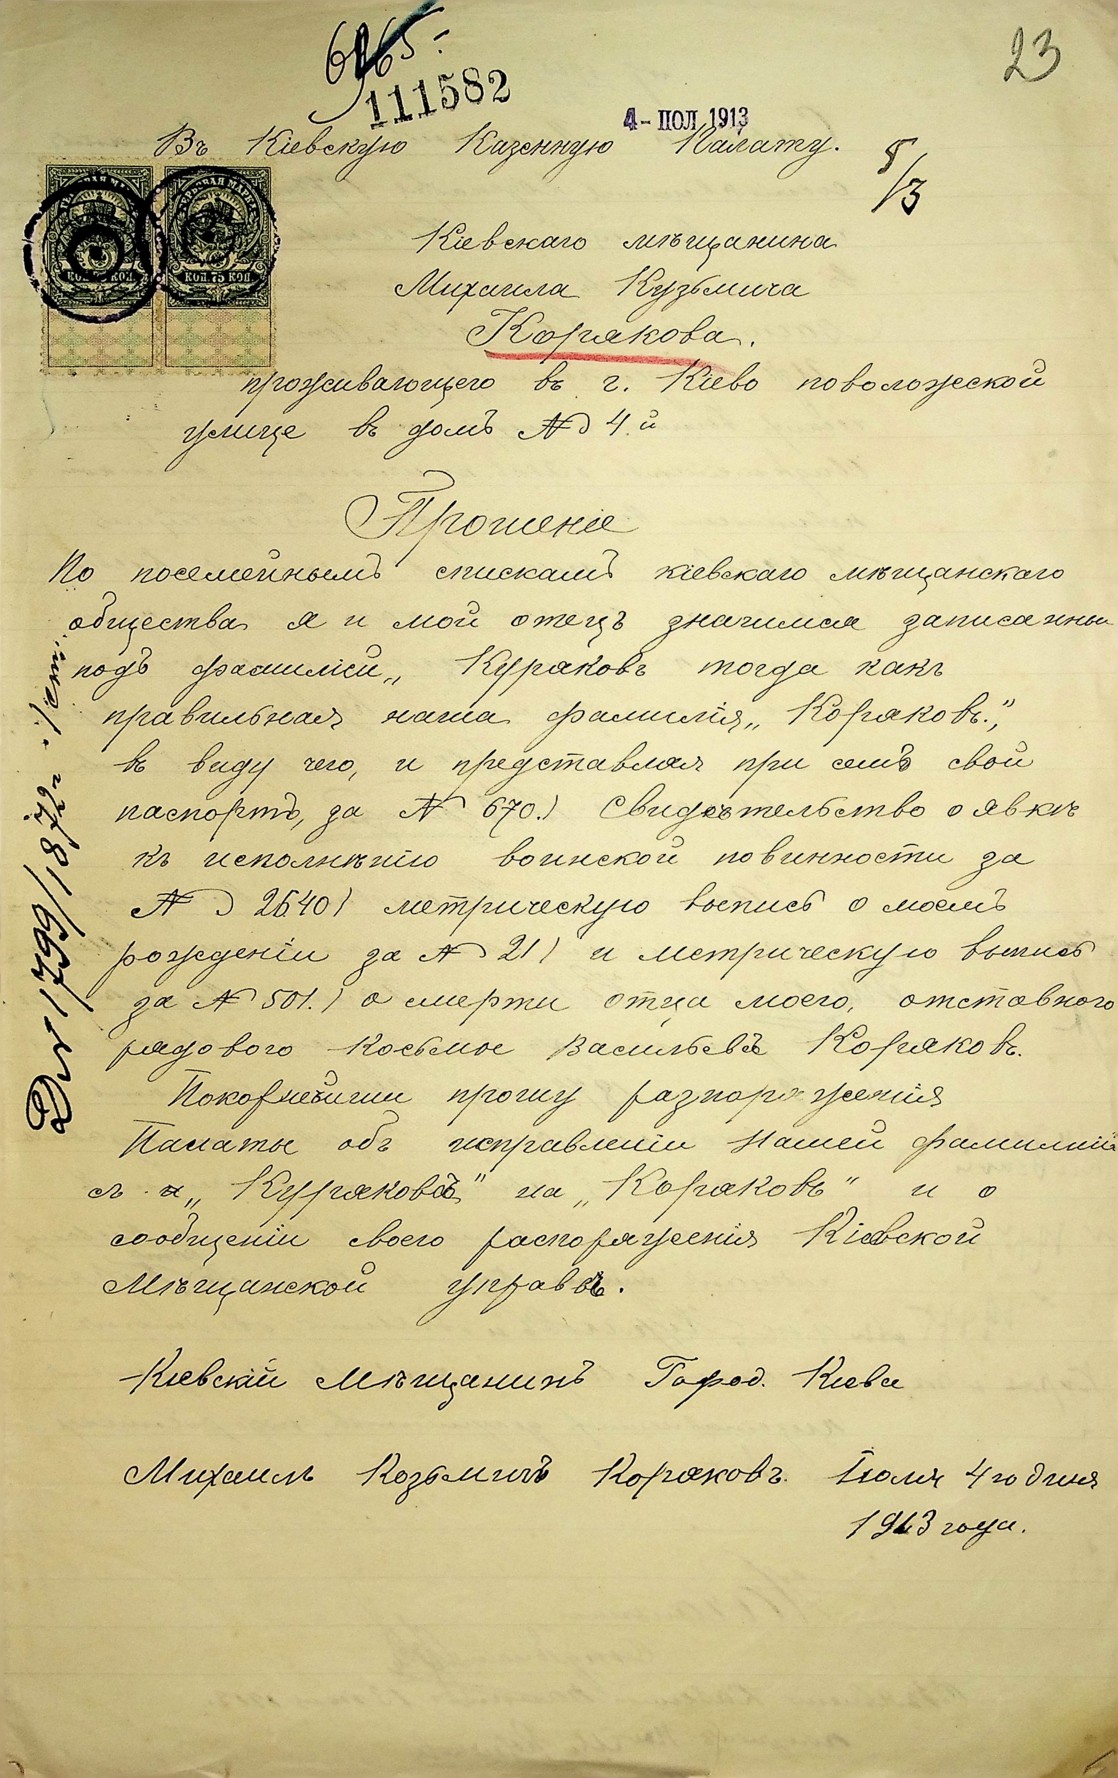 23
111582
4 - ІЮЛ 1913
Въ Кіевскую Казенную Палату.
8/3
КОП. 75 КОП.
Кіевскаго мѣщанина
Михаила Кузьмича
Корякова.
проживающего въ г. Кіево по воложской
улице въ домѣ № 4й
Прошеніе
По посемейнымъ спискамъ кіевскаго мѣщанскаго
общества я и мой отецъ значимся записанны
подъ фамиліей „Куряковъ тогда какъ
правильная наша фамилія „Коряковъ.”,
въ виду чего, и представляя при семъ свой
паспортъ, за № 670.) Свидѣтельство о явкѣ
къ исполнѣнію воинской повинности за
№ 2640) метрическую выпись о моемъ
рожденіи за № 21) и метрическую выпись
за № 501.) о смерти отца моего, отставного
рядового Косьмы Васильевъ Коряковъ.
Покорнейши прошу разпоряженія
Палаты объ исправленіи нашей фамиліи
съ „Куряковъ” на „Коряковъ” и о
сообщеніи своего распоряженія Кіевской
Мѣщанской управѣ.
Кіевскій Мѣщанинъ Город. Кіева
Михаилъ Козьмичъ Коряковъ. Іюля 4го дня
1913 года.
№ 1799/1872 г.